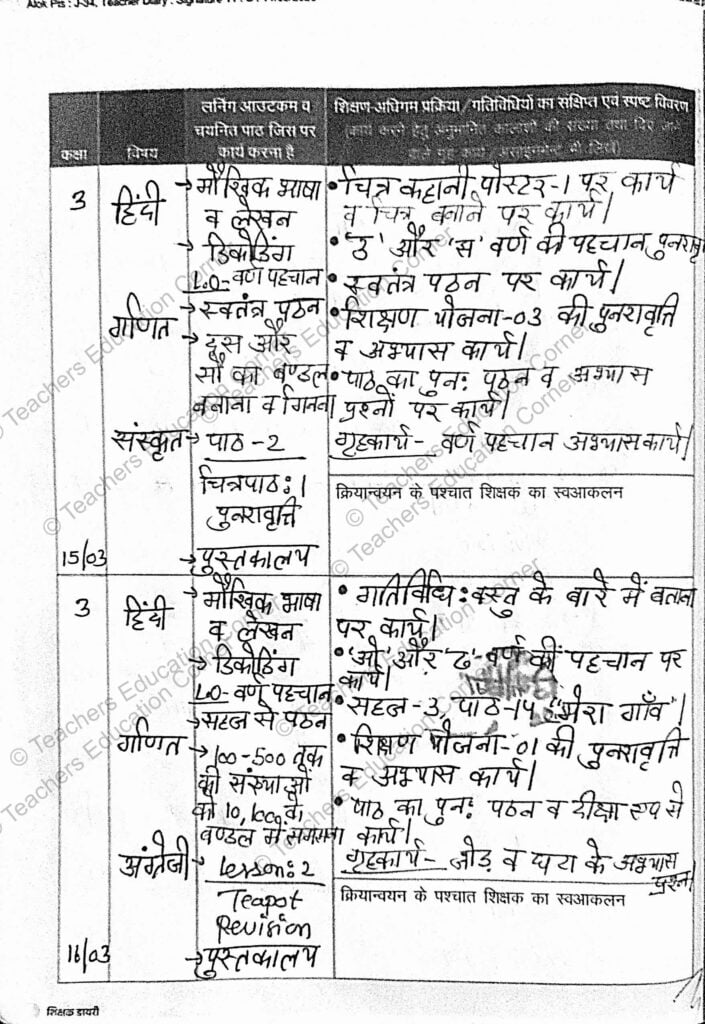 कक्षा
विषय
लर्निंग आउटकम व
चयनित पाठ जिस पर
कार्य करना है
शिक्षण-अधिगम प्रक्रिया/गतिविधियों का संक्षिप्त एवं स्पष्ट विवरण
(कार्य करने हेतु अनुमानित कालांशों की संख्या तथा दिए जाने
वाले गृह कार्य/असाइनमेंट भी लिखें)
3
हिंदी
→ मौखिक भाषा
व लेखन
→ डिकोडिंग
L.O- वर्ण पहचान
→ स्वतंत्र पठन
गणित
→ दस और
सौ का बण्डल
बनाना व गिनना
संस्कृत
→ पाठ -2
चित्रपाठः।
पुनरावृत्ति
→ पुस्तकालय
15/03
• चित्र कहानी पोस्टर-1 पर कार्य
व चित्र बनाने पर कार्य।
• 'उ' और 'स' वर्ण की पहचान पुनरावृ
• स्वतंत्र पठन पर कार्य।
• शिक्षण योजना-03 की पुनरावृत्ति
व अभ्यास कार्य।
• पाठ का पुनः पठन व अभ्यास
प्रश्नों पर कार्य।
गृहकार्य - वर्ण पहचान अभ्यास कार्य।
क्रियान्वयन के पश्चात शिक्षक का स्वआकलन
3
हिंदी
→ मौखिक भाषा
व लेखन
→ डिकोडिंग
L.O- वर्ण पहचान
→ सहज से पठन
गणित
→ 100-500 तक
की संख्याओं
को 10, 100 के
बण्डल में समझना
अंग्रेजी
→ Lesson: 2
Teapot
Revision
→ पुस्तकालय
16/03
• गतिविधि: वस्तु के बारे में बताना
पर कार्य।
• 'ओ' और 'ढ'-वर्ण की पहचान पर
कार्य।
• सहज-3, पाठ-14 "मेरा गाँव"।
• शिक्षण योजना-01 की पुनरावृत्ति
व अभ्यास कार्य।
• पाठ का पुनः पठन व दीक्षा एप से
कार्य।
गृहकार्य - जोड़ व घटा के अभ्यास
प्रश्न।
क्रियान्वयन के पश्चात शिक्षक का स्वआकलन
शिक्षक डायरी
© Teachers Education Corner
© Teachers Education Corner
© Teachers Education Corner
© Teachers Education Corner